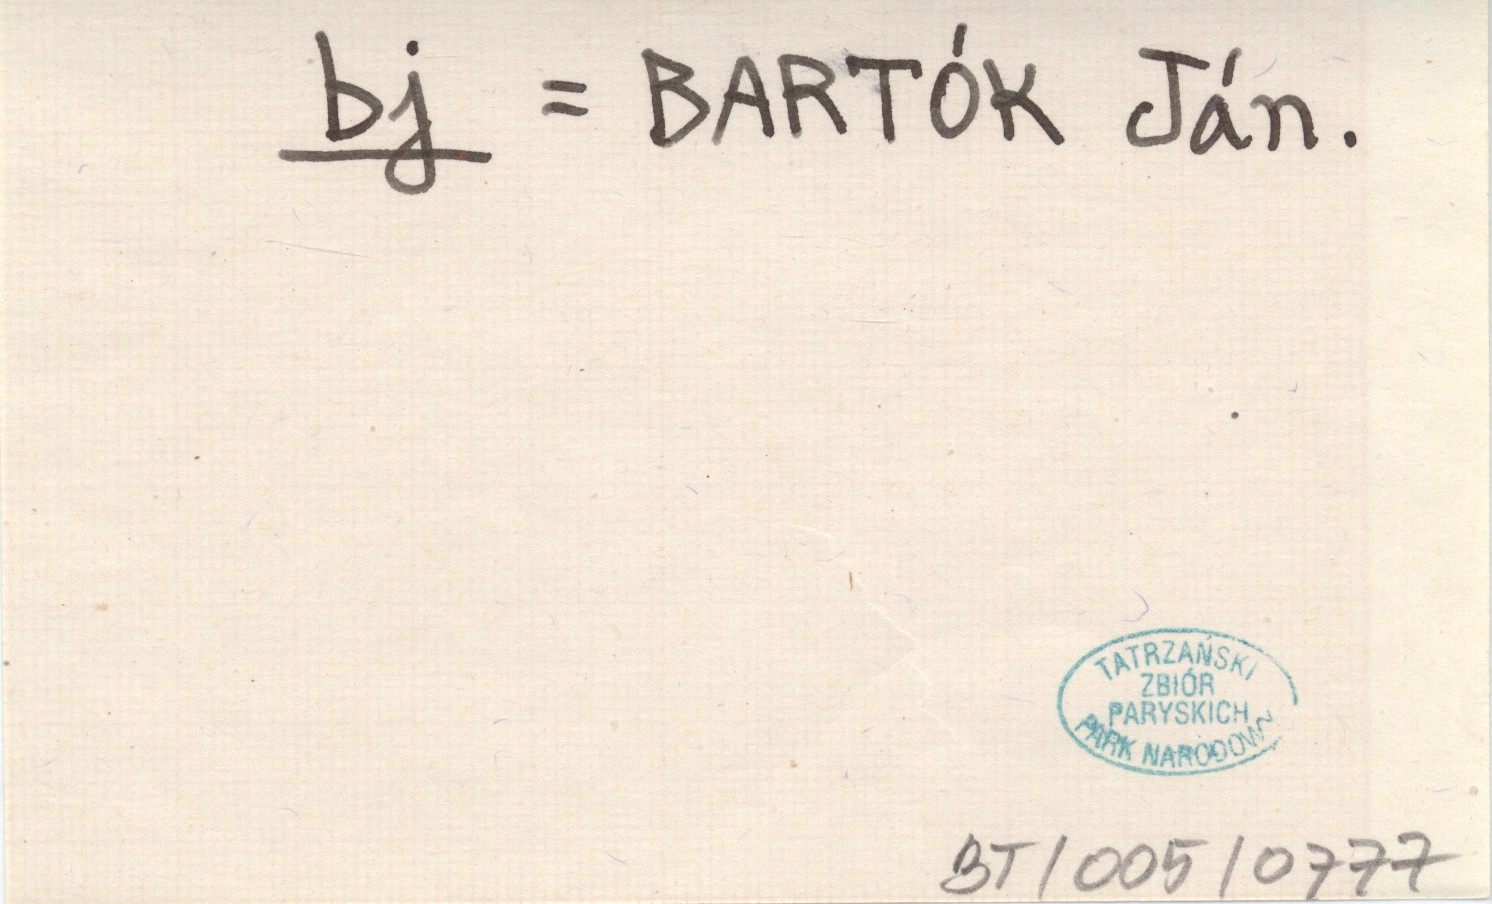 bj = BARTÓK Ján.
TATRZAŃSKI
ZBIÓR
PARYSKICH
PARK NARODOWY
BT/005/0777